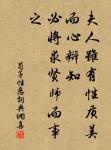 夫人雖有性質美
而心辯知
必將求賢師而事
之
荀子性惡詞典網書